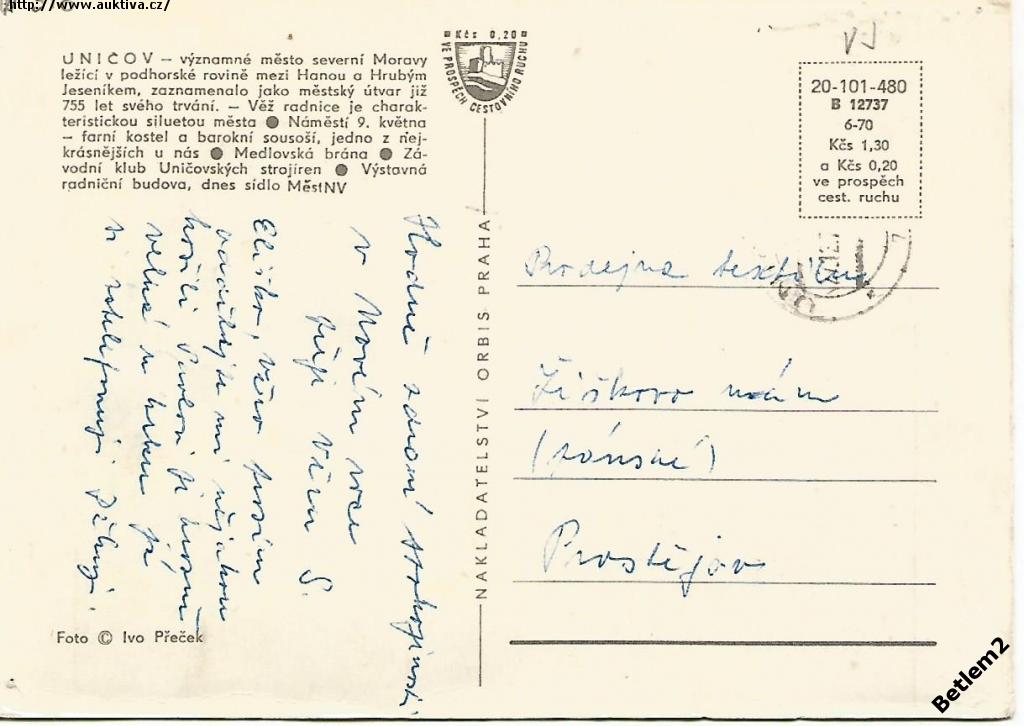 http://www.auktiva.cz/
UNIČOV – významné město severní Moravy
ležící v podhorské rovině mezi Hanou a Hrubým
Jeseníkem, zaznamenalo jako městský útvar již
755 let svého trvání. – Věž radnice je charak-
teristickou siluetou města ● Náměstí 9. května
– farní kostel a barokní sousoší, jedno z nej-
krásnějších u nás ● Medlovská brána ● Zá-
vodní klub Uničovských strojíren ● Výstavná
radniční budova, dnes sídlo MěstNV
Kčs 0,20
VE PROSPĚCH CESTOVNÍHO RUCHU
20-101-480
B 12737
6-70
Kčs 1,30
a Kčs 0,20
ve prospěch
cest. ruchu
Hodně zdraví spokojenosti
v Novém roce
přeje Věra S.
Eliško, Věro prosím
mi nějakou
velká
si zatelefonuji. Děkuji.
NAKLADATELSTVÍ ORBIS PRAHA
Prodejna textilu
Žižkovo nám
(pánské)
Prostějov
Foto © Ivo Přeček
Betlem2